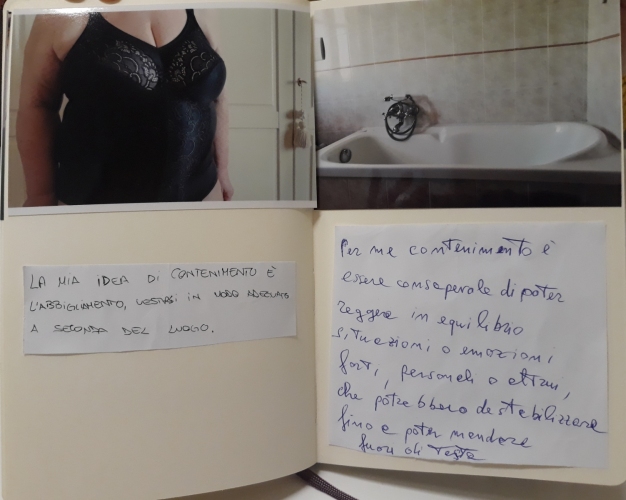 LA MIA IDEA DI CONTENIMENTO È
L'ABBIGLIAMENTO, VESTIRSI IN MODO ADEGUATO
A SECONDA DEL LUOGO.
Per me contenimento è
essere consapevole di poter
reggere in equilibrio
situazioni o emozioni
forti, personali o altrui,
che potrebbero destabilizzare
fino a poter mandare
fuori di testa